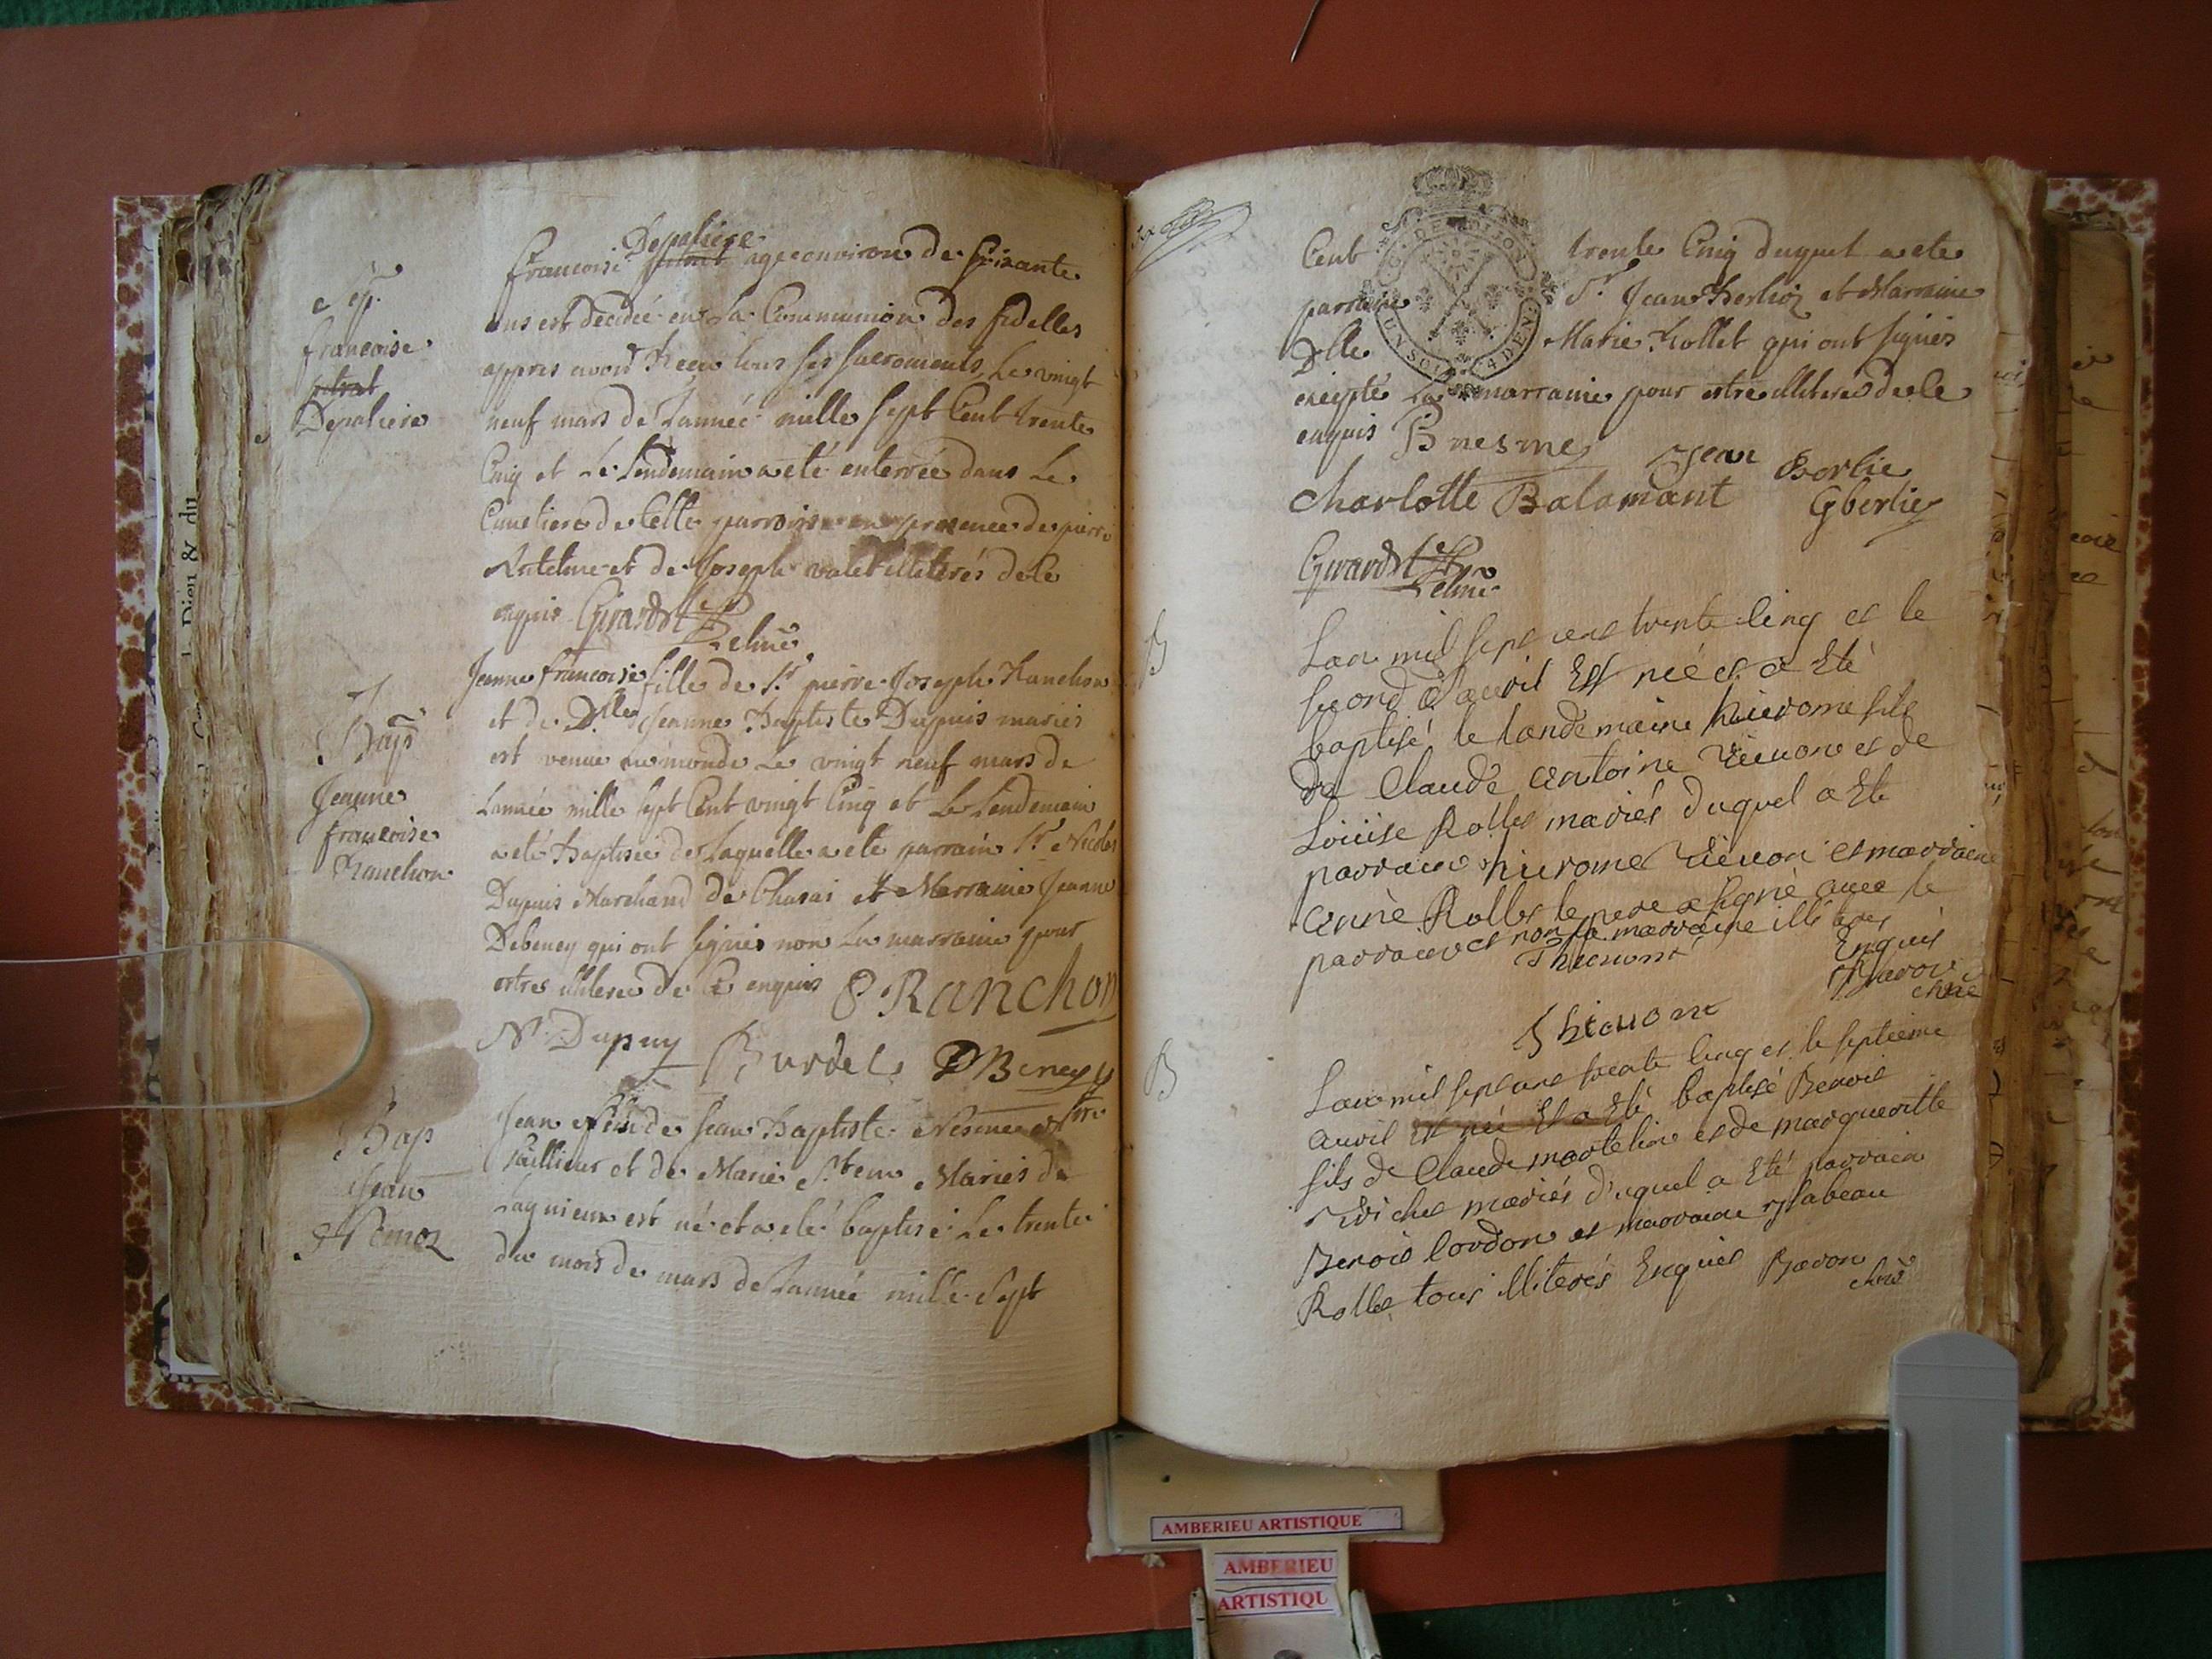 Sep.
francoise
petrat
Depaliere
Depaliere
francoise petrat agee environ de soixante
ans est décédé en la Communion des fidelles
appres avoir Receu tous ses sacrements, Le vingt
neuf mars de Lannée mille sept Cent trente
Cinq et Le Lendemain a eté enterrée dans Le
Cimetiere de Cette parroisse en presence de pierre
Antelme et de Joseph valet illiterés de Ce
enquis Girardet
Jeanne francoise fille de Sr. pierre Joseph Ranchon
et de Dlle Jeanne Baptiste Dupuis mariés
est venue au monde Le vingt neuf mars de
Lannée mille sept Cent vingt Cinq et Le Lendemain
a eté Baptisée de Laquelle a ete parrain Sr. Nicolas
Dupuis Marchand de Chasai et Marraine Jeanne
Debeney qui ont signés non La marraine pour
estre illiterée de Ce enquis P Ranchon
N. Dupuy Burdel DBeney
Bap
Jeanne
francoise
Ranchon
Jean fils de Jean Baptiste Nesme
taillieur et de Marie Mariés de
Lagnieux est né et a eté baptisé Le trente
du mois de mars de Lannée mille Sept
Bap
Jean
Cent trente Cinq duquel a ete
parrain Sr. Jean Berlioz et Marraine
Dlle Marie Rollet qui ont signés
excepté La marraine pour estre illiteree de Ce
enquis B nesme Jean Berlie
Charlotte Balamant G berlie
Girardet
G. DE DIJON
UN SOL 4 DEN.
B
Lan mil sept cent trente cinq et le
second d'avril Est né et a Eté
baptisé le landemain hierome fils
de Claude antoine et de
Loüise Rollet mariés duquel a Eté
parrain hierome et marraine
anne Rollet le pere a signé avec le
parrain et non la marraine illiteres
Enquis
B
Lan mil sept cent trente cinq et le septieme
avril Est né Et a Eté baptisé Benoit
fils de Claude martelin et de margueritte
mariés duquel a Eté parrain
Benoit Cordon et marraine ysabeau
Rollet tous illiterés Enquis
AMBERIEU ARTISTIQUE
AMBERIEU
ARTISTIQU